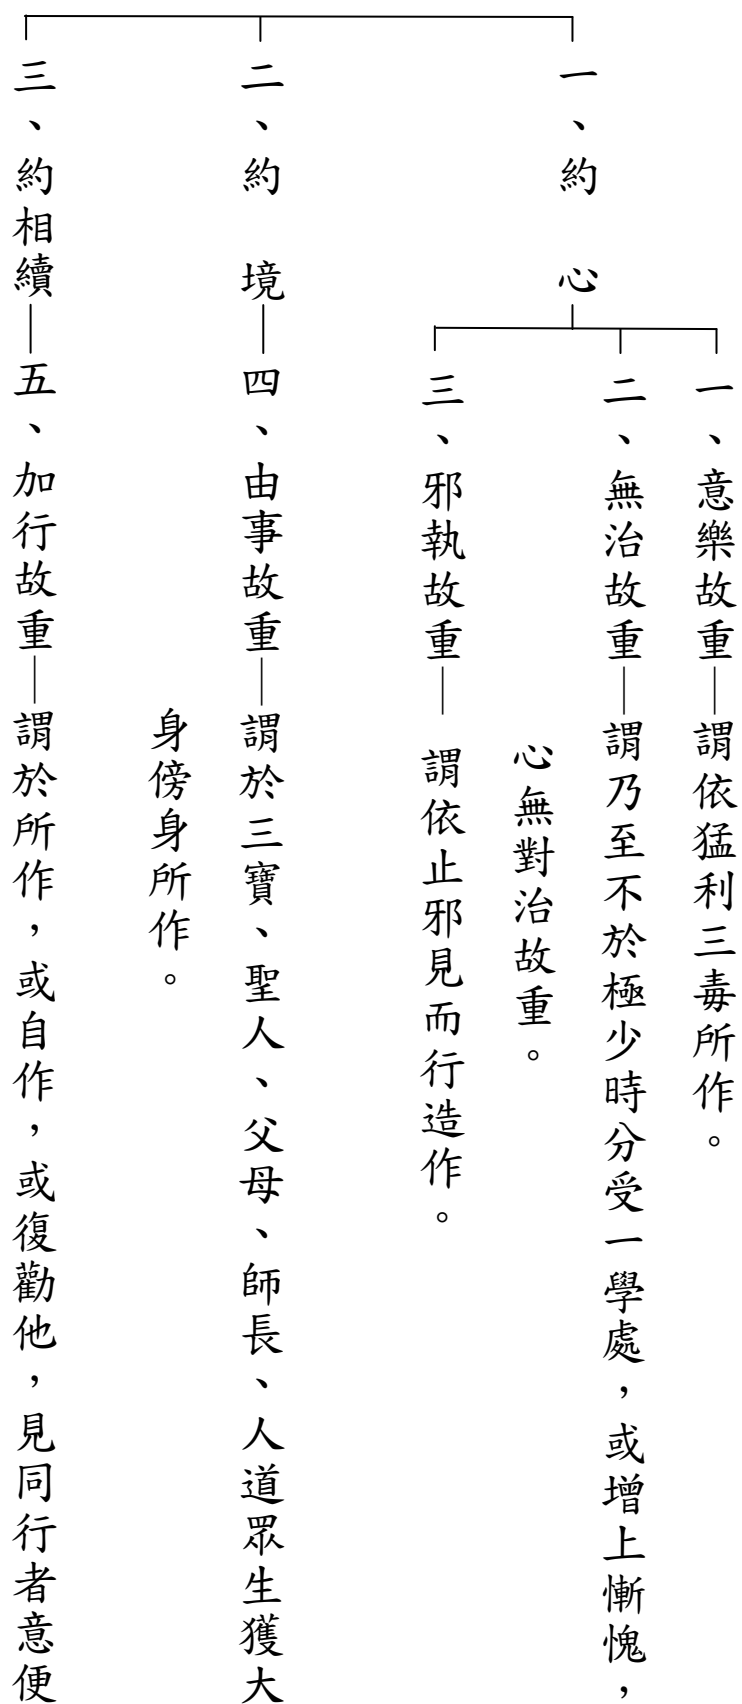 一、約　心
一、意樂故重—謂依猛利三毒所作。
二、無治故重—謂乃至不於極少時分受一學處，或增上慚愧，
心無對治故重。
三、邪執故重—謂依止邪見而行造作。
二、約　境—四、由事故重—謂於三寶、聖人、父母、師長、人道眾生獲大
身傍身所作。
三、約相續—五、加行故重—謂於所作，或自作，或復勸他，見同行者意便